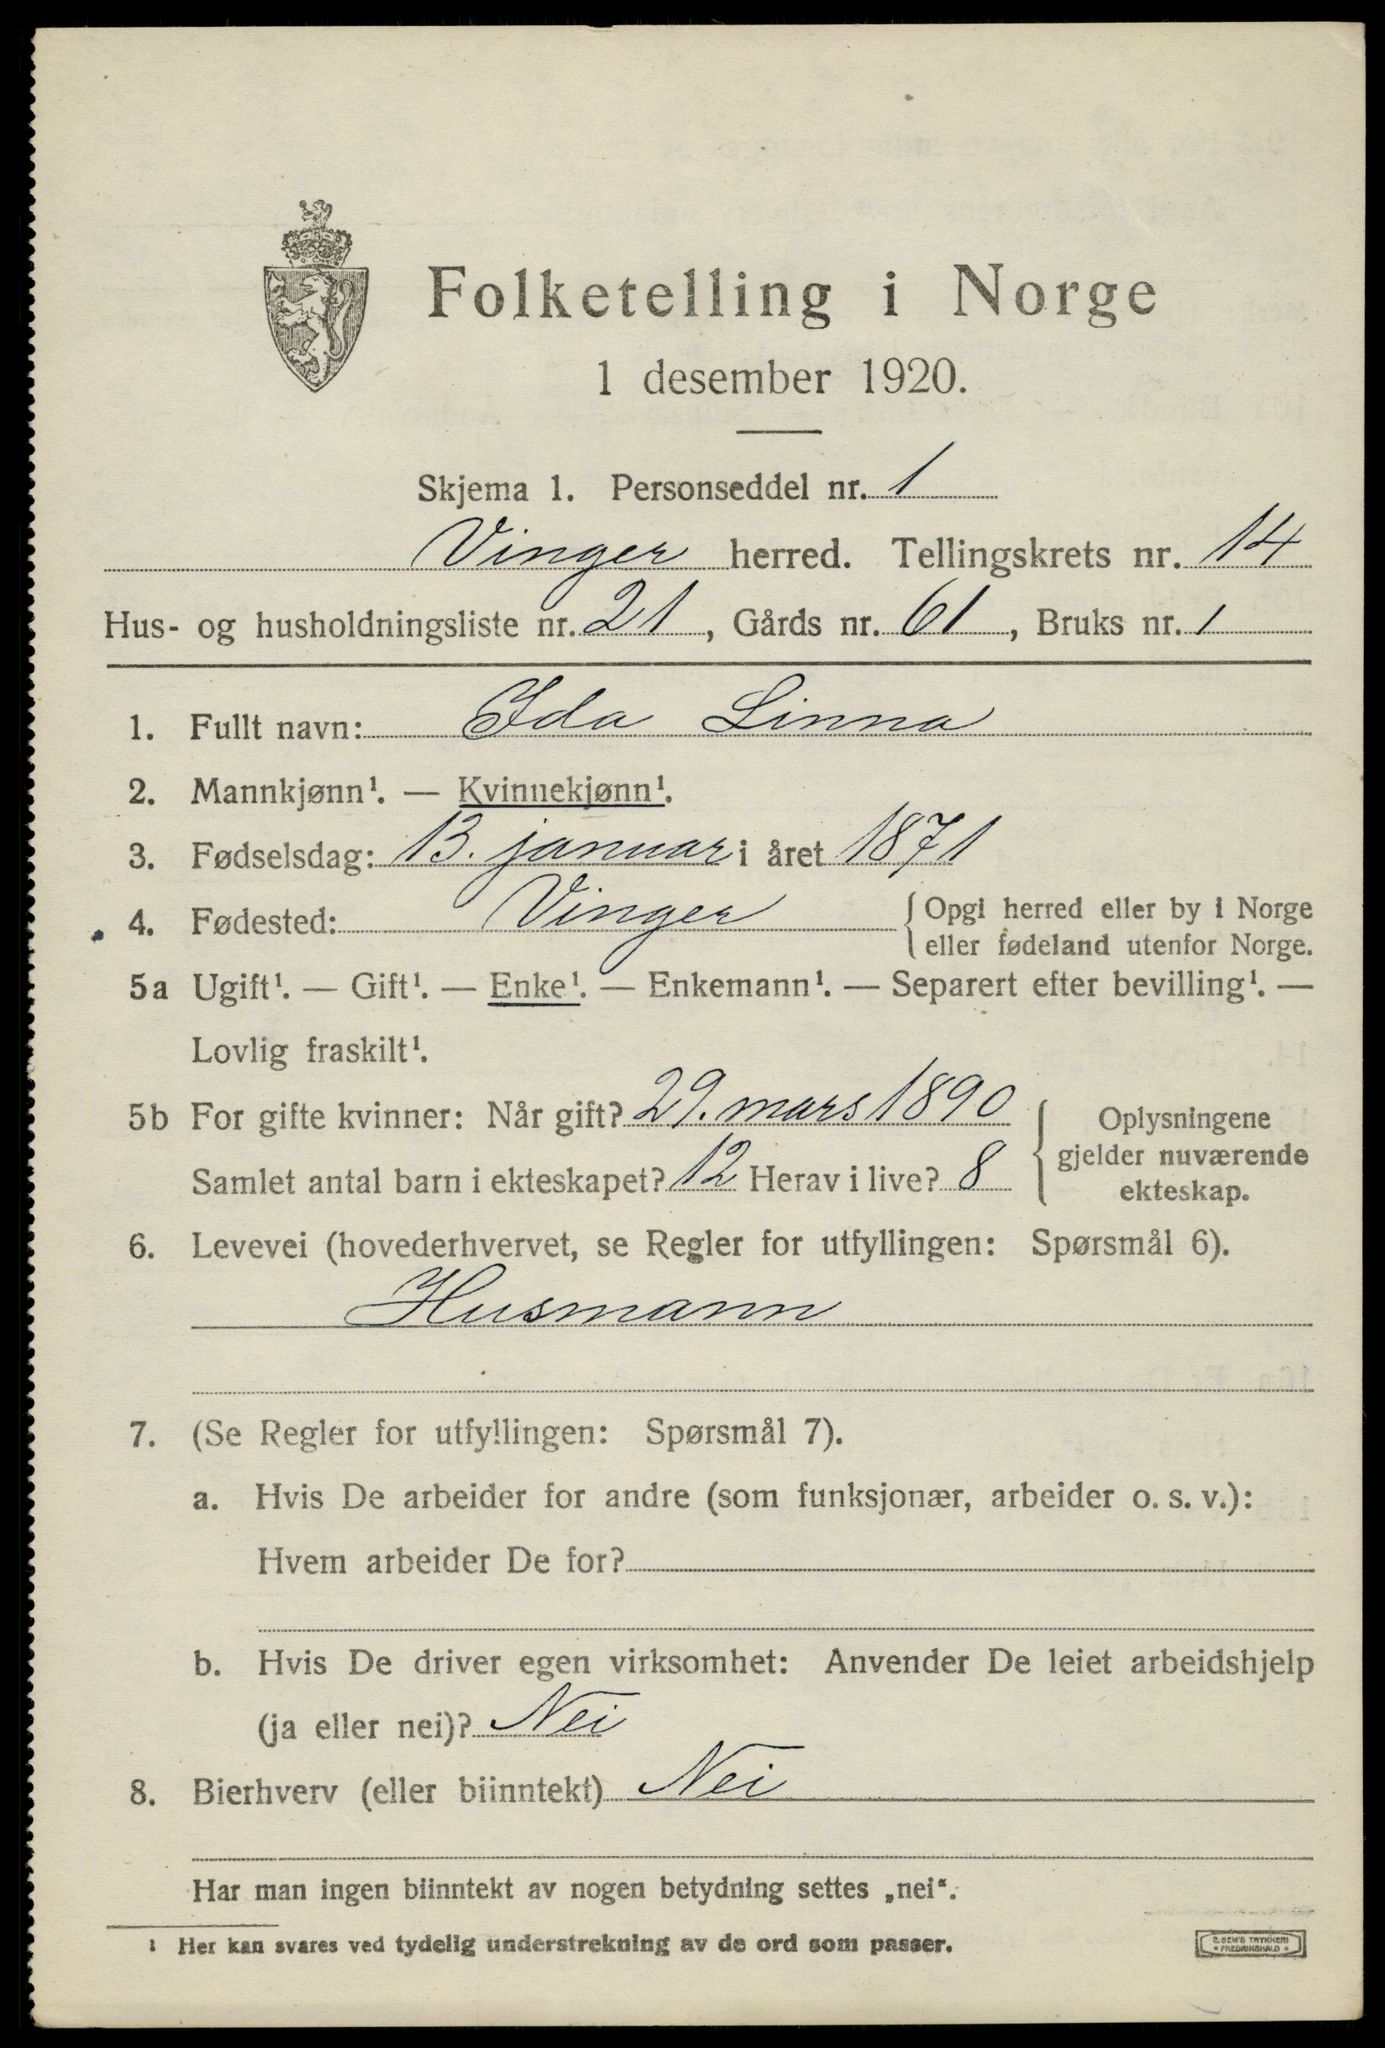 Folketelling i Norge
1 desember 1920.
Skjema 1. Personseddel nr. 1
Vinger herred. Tellingskrets nr. 14
Hus- og husholdningsliste nr. 21, Gårds nr. 61, Bruks nr. 1
1. Fullt navn: Ida Linna
2. Mannkjønn¹. — Kvinnekjønn¹.
3. Fødselsdag: 13. januar i året 1871
4. Fødested: Vinger { Opgi herred eller by i Norge
eller fødeland utenfor Norge.
5a Ugift¹. — Gift¹. — Enke¹. — Enkemann¹. — Separert efter bevilling¹. —
Lovlig fraskilt¹.
5b For gifte kvinner: Når gift? 29. mars 1890
Samlet antal barn i ekteskapet? 12 Herav i live? 8
Oplysningene
gjelder nuværende
ekteskap.
6. Levevei (hovederhvervet, se Regler for utfyllingen: Spørsmål 6).
Husmann
7. (Se Regler for utfyllingen: Spørsmål 7).
a. Hvis De arbeider for andre (som funksjonær, arbeider o. s. v.):
Hvem arbeider De for?
b. Hvis De driver egen virksomhet: Anvender De leiet arbeidshjelp
(ja eller nei)? Nei
8. Bierhverv (eller biinntekt) Nei
Har man ingen biinntekt av nogen betydning settes „nei“.
¹ Her kan svares ved tydelig understrekning av de ord som passer.